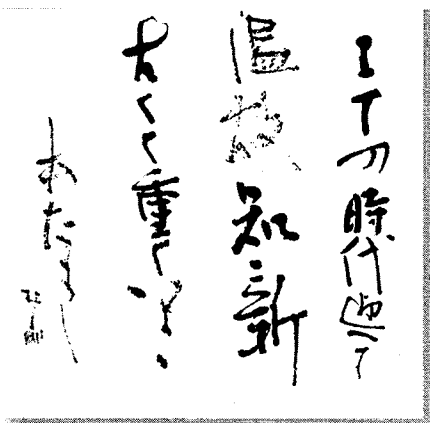 ITの時代迎へて
温故知新
古くて重くいよゝ
あたらし